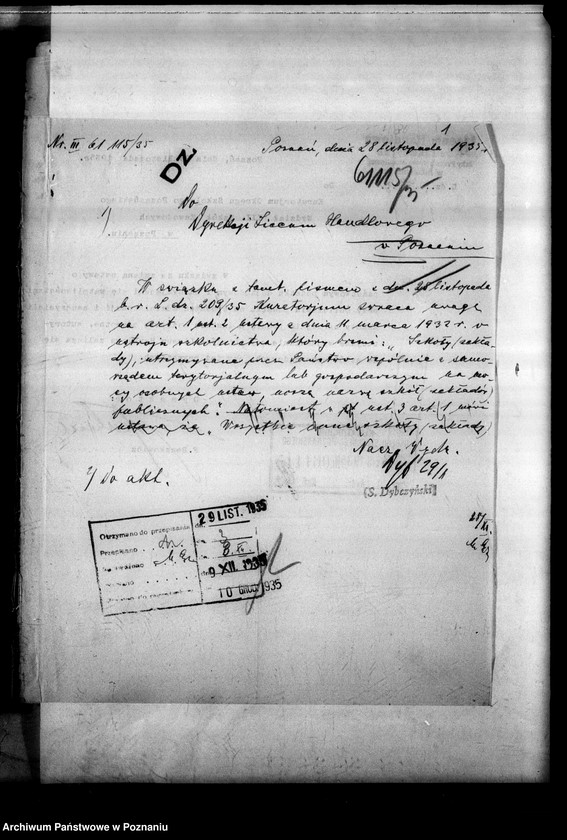 1
Nr. III 61 115/35
Poznań, dnia 28 listopada 1935 r.
DZ
61115/35
Do
1) Dyrekcji Liceum Handlowego
w Poznaniu
W związku z tamt. pismem z dn. 28 listopada
b. r. L. dz. 209/35 Kuratorjum zwraca uwagę
na art. 1 pt. 2 ustawy z dnia 11 marca 1932 r. o
ustroju szkolnictwa, który brzmi: „Szkoły (zakła-
dy), utrzymywane przez Państwo wspólnie z samo-
rządem terytorjalnym lub gospodarczym na mo-
cy osobnych ustaw, noszą nazwę szkół (zakładów)
publicznych". Natomiast ust. 3 art. 1
ustawy Wszystkie inne szkoły (zakłady)
Nacz. Wydz.
Dyb 29/11
(S. Dybczyński)
2) Do akt.
Otrzymano do przepisania 29 LIST. 1935
Przepisano
8. XII.
dn 9 XII. 1935
10 GRUD 1935
Archiwum Państwowe w Poznaniu